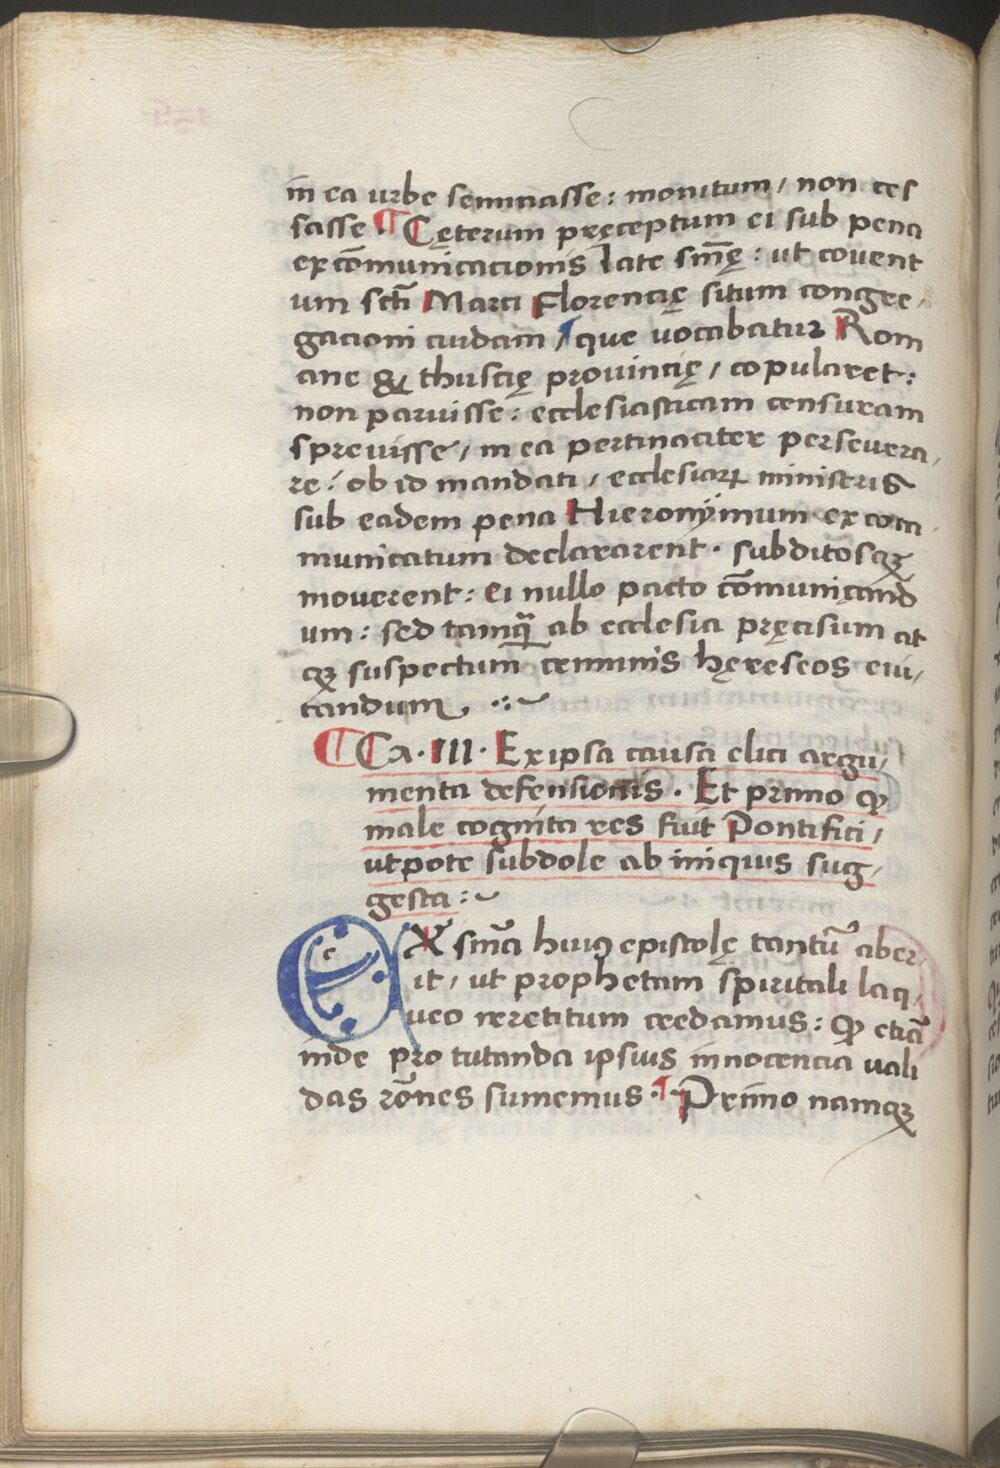 in ea urbe seminasse: monitum / non ces
sasse ¶ Cęterum pręceptum ei sub pena
excõmunicacionis late sn̄ię: ut covent
um scti̅ Marci Florencię situm congre-
gacioni cuidam / ¶ que vocabatur Rom
ane & thuscię provincię / copularet:
non paruisse: ecclesiasticam censuram
sprevisse / in ea pertinaciter persevera-
re: ob id mandati / ecclesiaꝝ ministris
sub eadem pena Hieronÿmum excom-
municatum declararent. subditosqꝫ
moverent: ei nullo pacto cõmunicand
um: sed tamq̃ ab ecclesia pręcisum at
qꝫ suspectum criminis hęreseos evi/
tandum ·:~
¶ Ca. III. Ex ipsa causa elici argu/
menta defensionis. Et primo ꝙ
male cognita res fuit Pontifici /
utpote subdole ab iniquis sug/
gesta:~
EX sn̄ia huiꝰ epistolę tantũ aber/
it / ut prophetam spiritali laq/
ueo irretitum credamus: ꝙ etiã
inde pro tutanda ipsius innocencia vali
das rõnes sumemus. ¶ Primo namqꝫ